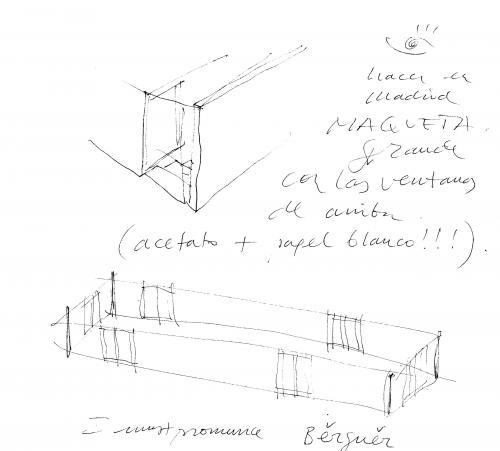 hacer en
Madrid
MAQUETA
grande
con las ventanas
de arriba.
(acetato + papel blanco!!!).
I must pronounce Bĕrguĕr